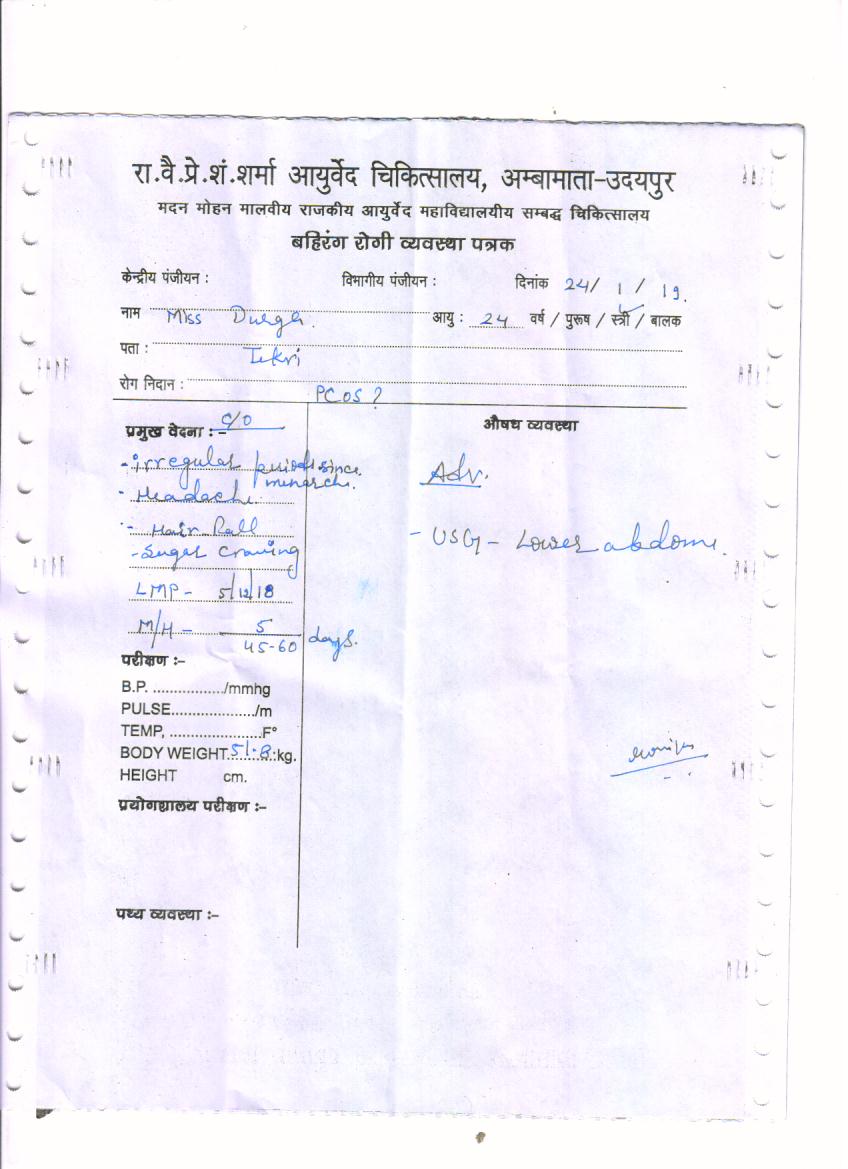 रा.वै.प्रे.शं.शर्मा आयुर्वेद चिकित्सालय, अम्बामाता-उदयपुर
मदन मोहन मालवीय राजकीय आयुर्वेद महाविद्यालयीय सम्बद्ध चिकित्सालय
बहिरंग रोगी व्यवस्था पत्रक
केन्द्रीय पंजीयन : विभागीय पंजीयन : दिनांक 24/ 1 / 19.
नाम Miss Durga. आयु : 24 वर्ष / पुरूष / स्त्री / बालक
पता : Tekri
रोग निदान : PCOS ?
प्रमुख वेदना :- C/O औषध व्यवस्था
- irregular periods since
menarche.
- Headache Adv.
- Hair Fall
- USG - Lower abdomen.
- Sugar Craving
LMP - 5/12/18
M/H - 5
45-60 days.
परीक्षण :-
B.P. ................./mmhg
PULSE..................../m
TEMP, ......................F°
BODY WEIGHT 51.8 kg.
HEIGHT cm.
प्रयोगशालय परीक्षण :-
पथ्य व्यवस्था :-